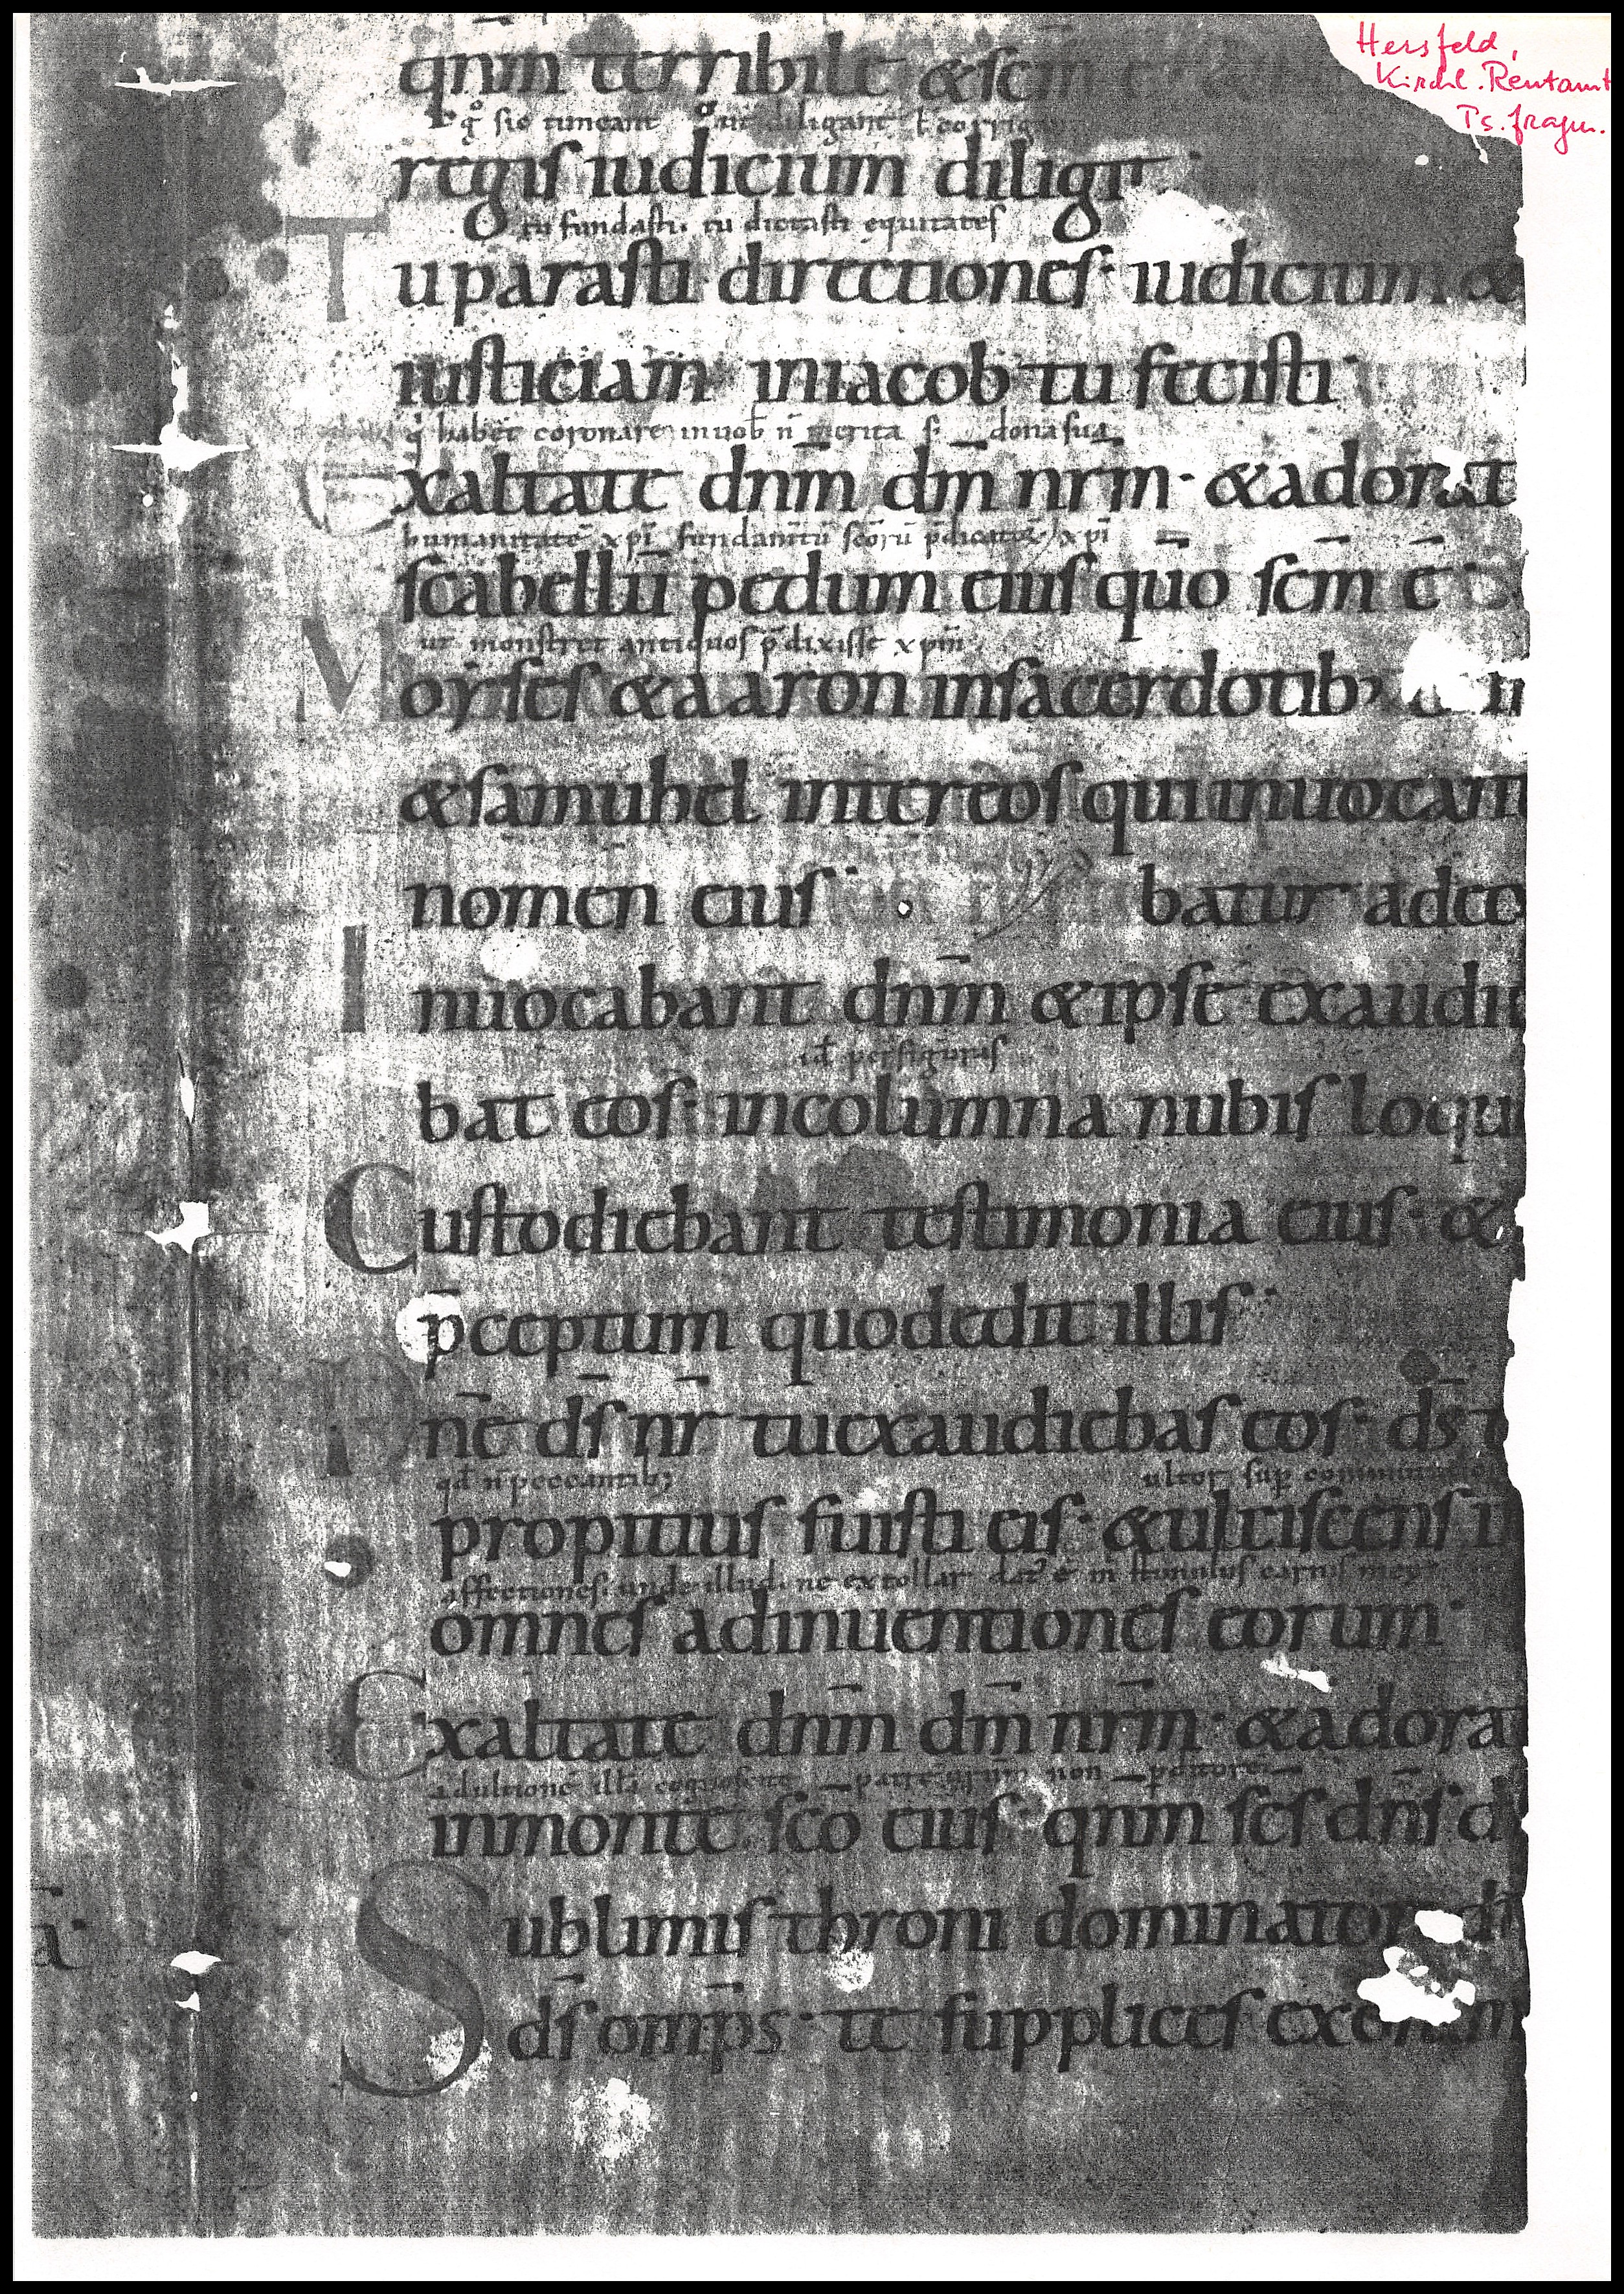 Hersfeld,
Kirchl. Rentamt
Ps. fragm.
qnm̄ terribile & scm̄
q° sic timeant diligant ł corrigan
regis iudicium diligit·
tu fundasti. tu dictasti equitates
Tu parasti directiones· iudicium &
iusticiam in iacob tu fecisti·
q habet coronare in uob n̄ merita s; dona sua
Exaltate dnm̄ dm̄ nrm̄· & adorat
humanitatē xpi fundam̄tū scōrū p̄dicator xpi
scabellū pedum eius quō scm̄ ē·
ut monstret antiquos p̄dixisse xpm̄
Moyses & aaron in sacerdotib;
& samuhel inter eos qui inuocant
nomen eius· batur ad eo
Inuocabant dnm̄ & ipse exaudie
id per figuras
bat eos· in columna nubis loque
Custodiebant testimonia eius· &
p̄ceptum quod dedit illis·
Dnē ds̄ nr̄ tu exaudiebas eos· ds̄ t
qd n̄ peccantib; ultor sup
propitius fuisti eis· & ulciscens i
affectiones. unde illud. ne extollar dat' ē m stimulus carnis meę
omnes adinuentiones eorum·
Exaltate dnm̄ dm̄ nrm̄· & adorat
in monte scō eius· qnm̄ scs̄ dns̄ d
Sublimis throni dominator
a·
ds̄ omps̄· te supplices exoram